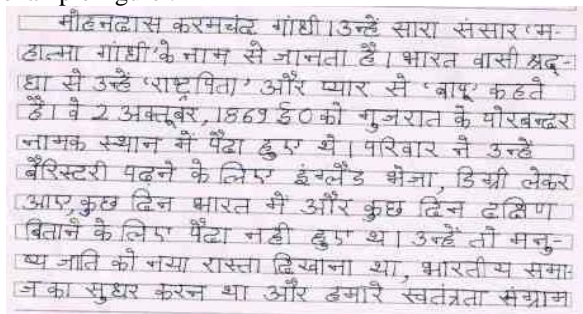 मोहनदास करमचंद गांधी।उन्हें सारा संसार 'म-
हात्मा गांधी'के नाम से जानता है। भारत वासी श्रद्-
धा से उन्हें 'राष्ट्रपिता' और प्यार से 'बापू' कहते
है। वे 2 अक्तूबर,1869 ई0 को गुजरात के पोरबन्दर
नामक स्थान में पैदा हुए थे। परिवार ने उन्हें
बैरिस्टरी पढ़ने के लिए इंग्लैंड भेजा, डिग्री लेकर
आए,कुछ दिन भारत में और कुछ दिन दक्षिण
बिताने के लिए पैदा नही हुए था। उन्हें तो मनु-
ष्य जाति को नया रास्ता दिखाना था, भारतीय समा-
ज का सुधर करन था और हमारे स्वतंत्रता संग्राम